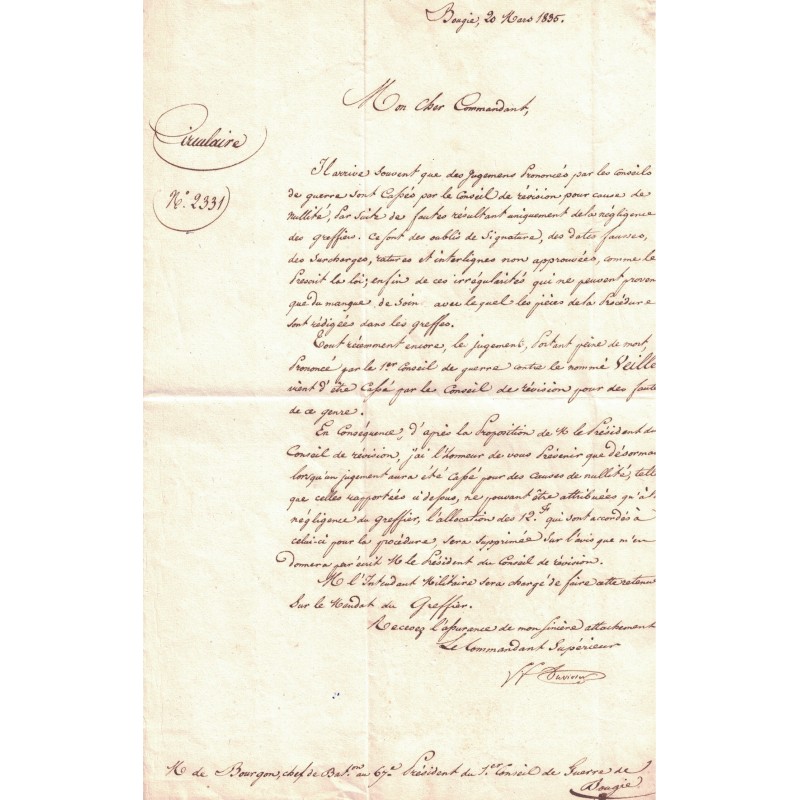 Bougie, 20 Mars 1835.
Mon cher Commandant,
Circulaire
N.º 2331
Il arrive souvent que des jugemens prononcés par les conseils
de guerre sont cassés par le Conseil de révision pour cause de
nullité, par suite de fautes résultant uniquement de la négligence
des greffiers. Ce sont des oublis de signature, des dates fausses,
des surcharges, ratures et interlignes non approuvées, comme le
prescrit la loi; enfin de ces irrégularités qui ne peuvent proven
que du manque de soin avec lequel les pièces de la procédure
sont rédigées dans les greffes.
Tout récemment encore, le jugement, portant peine de mort,
prononcé par le 1er Conseil de guerre contre le nommé Veille
vient d'être cassé par le Conseil de révision pour des faute
de ce genre.
En conséquence, d'après la proposition de M le Président du
Conseil de révision, j'ai l'honneur de vous prévenir que désorma
lorsqu'un jugement aura été cassé pour des causes de nullité, tell
que celles rapportées ci dessus, ne pouvant être attribuées qu'à l
négligence du greffier, l'allocation des 12.f qui sont accordés à
celui-ci pour la procédure, sera supprimée sur l'avis que m'en
donnera par écrit M le Président du Conseil de révision.
M l'Intendant Militaire sera chargé de faire cette retenue
sur le Mandat du Greffier.
Recevez l'assurance de mon sincère attachement
Le Commandant Supérieur
Duvivier
M de Bourgon, chef de Bat.on au 67e Président du 1er Conseil de Guerre de
Bougie